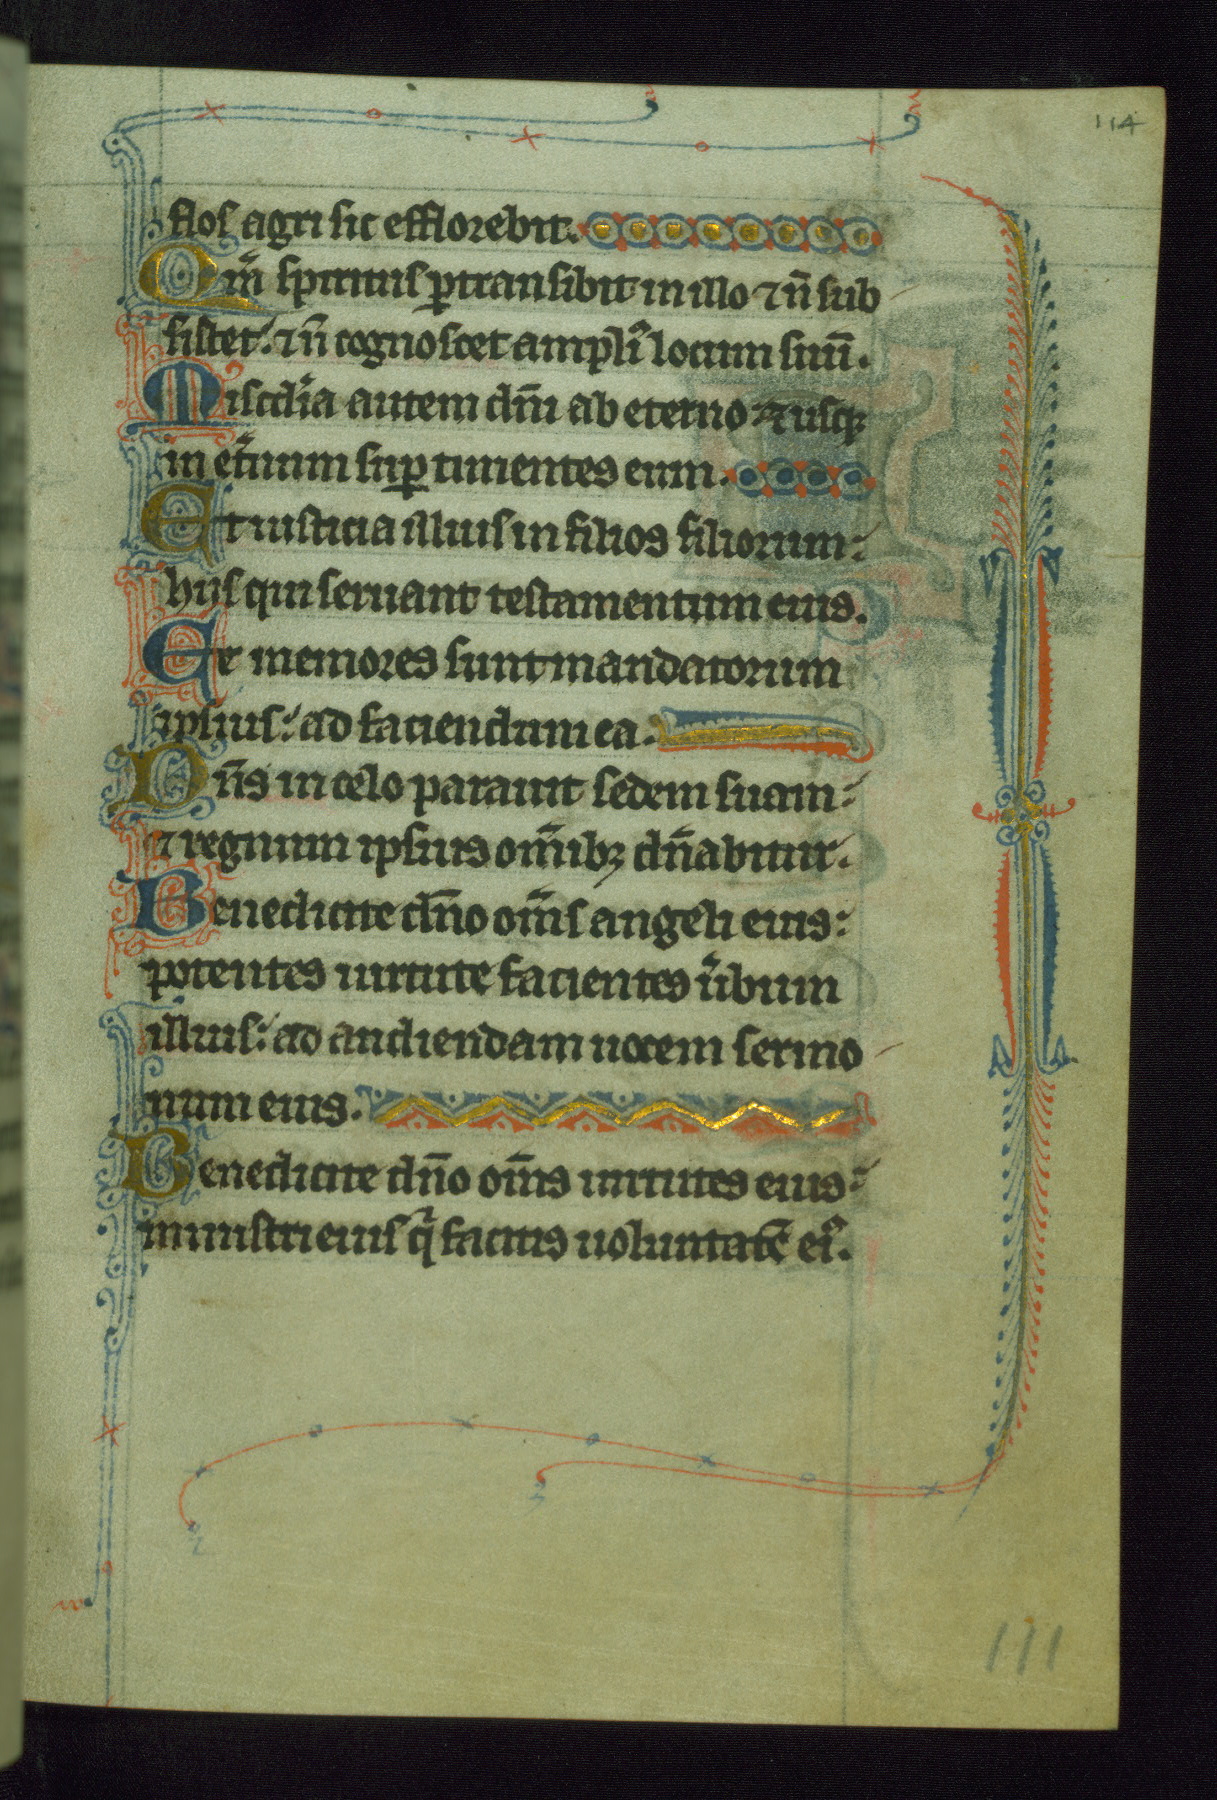 114
flos agri sic efflorebit.
Qm̄ spiritus ꝑtransibit in illo ⁊ n̄ sub
sistet: ⁊ n̄ cognoscet ampliꝰ locum suū.
Miscd̓ia autem dn̄i ab eterno: ⁊ usqꝫ
in et̓num suꝑ timentes eum.
Et iusticia illius in filios filiorum:
hijs qui seruant testamentum eius.
Et memores sunt mandatorum
ipsius: ad faciendum ea.
Dn̄s in celo parauit sedem suam:
⁊ regnum ipsius om̄ibꝫ dn̄abitur.
Benedicite dn̄o om̄s angeli eius:
potentes uirtute facientes u̓bum
illius: ad audiendam uocem sermo
num eius.
Benedicite dn̄o om̄s uirtutes eius:
ministri eius q̓ facitis uoluntatē eiꝰ.
111